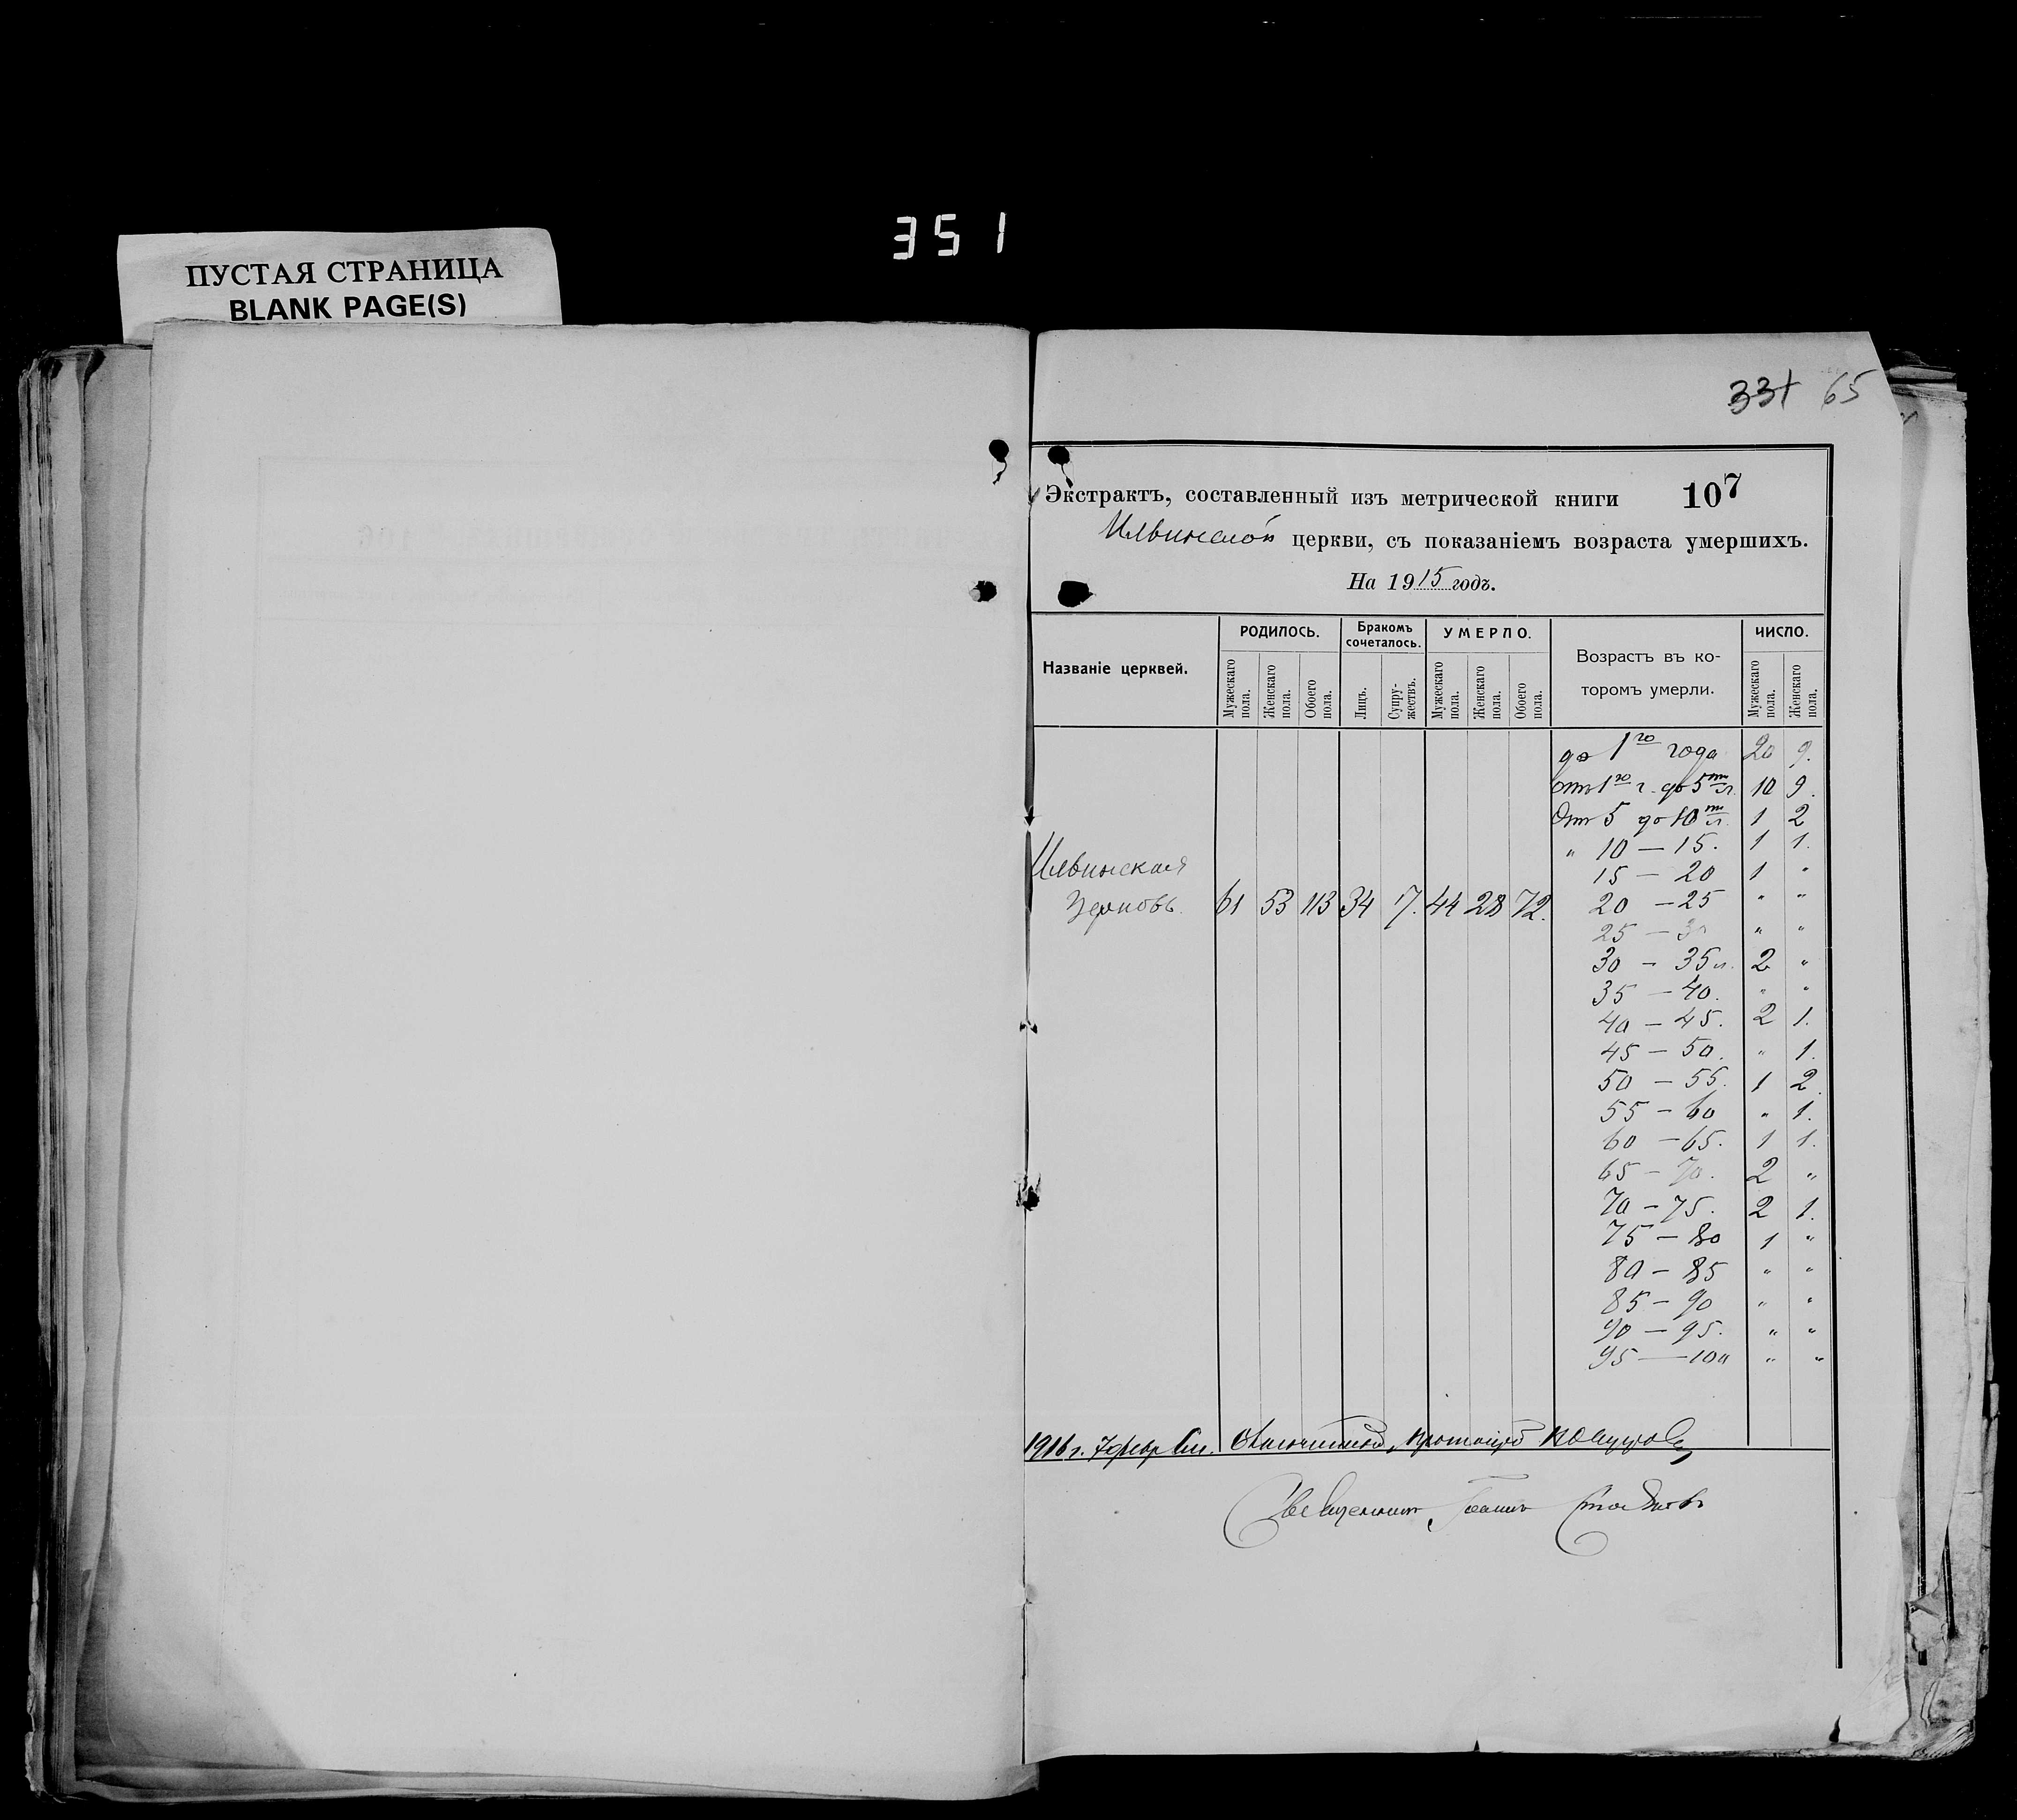 351
ПУСТАЯ СТРАНИЦА
BLANK PAGE(S)
331 65
Экстрактъ, составленный изъ метрической книги 107
Ильинской церкви, съ показаніемъ возраста умершихъ.
На 1915 годъ.
Названіе церквей. РОДИЛОСЬ. Бракомъ сочеталось. УМЕРЛО. Возрастъ въ которомъ умерли. ЧИСЛО.
Мужескаго пола. Женскаго пола. Обоего пола. Лицъ. Супружествъ. Мужескаго пола. Женскаго пола. Обоего пола. Мужескаго пола. Женскаго пола.
до 1го года 20 9.
отъ 1го г. до 5ти л. 10 9.
Отъ 5 до 10ти л. 1 2
" 10 — 15. 1 1.
Ильинская
15 — 20 1 "
церковь. 61 53 113 34 17. 44 28 72. 20 — 25 " "
25 — 30 " "
30 — 35 л. 2 "
35 — 40. " "
40 — 45. 2 1.
45 — 50. " 1.
50 — 55. 1 2.
55 — 60 " 1.
60 — 65. 1 1.
65 — 70. 2 "
70 — 75. 2 1.
75 — 80 1 "
80 — 85 " "
85 — 90 " "
90 — 95. " "
95 — 100 " "
1916 г.
Священникъ Іоаннъ